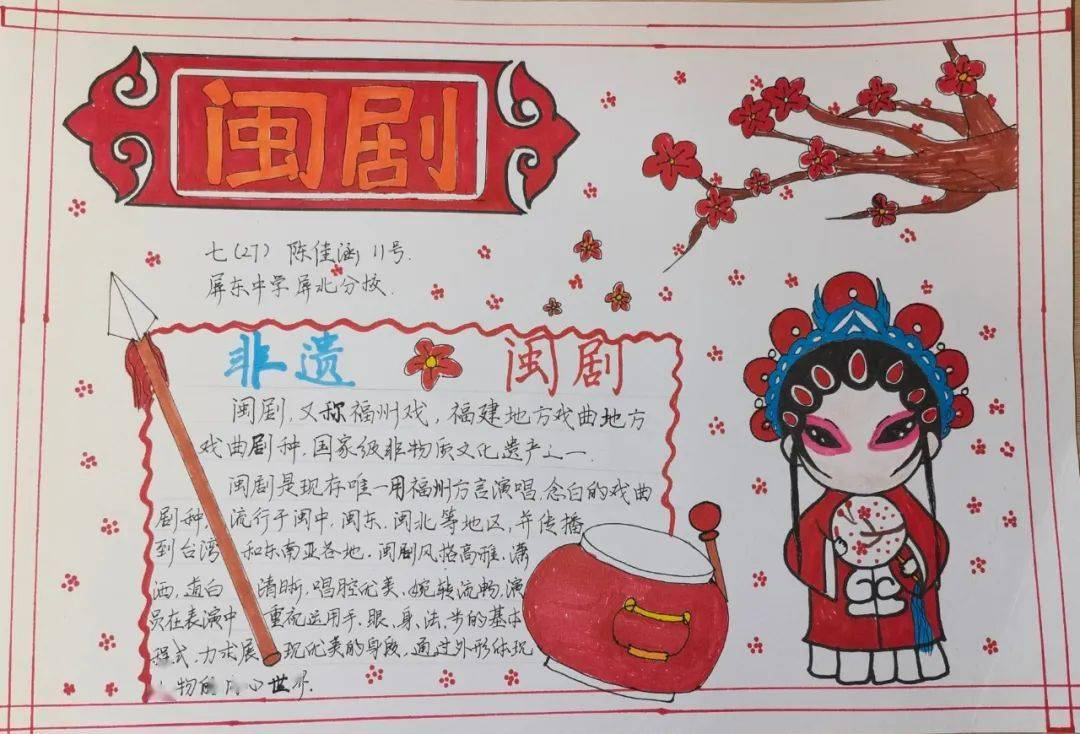 闽剧
七(27) 陈佳涵 11号.
屏东中学屏北分校.
非遗 闽剧
闽剧,又称福州戏,福建地方戏曲地方
戏曲剧种.国家级非物质文化遗产之一.
闽剧是现存唯一用福州方言演唱、念白的戏曲
剧种,流行于闽中、闽东、闽北等地区,并传播
到台湾和东南亚各地.闽剧风格高雅、潇
洒,道白清晰,唱腔优美、婉转流畅,演
员在表演中重视运用手、眼、身、法、步的基本
程式,力求展现优美的身段,通过外形体现
物的内心世界.